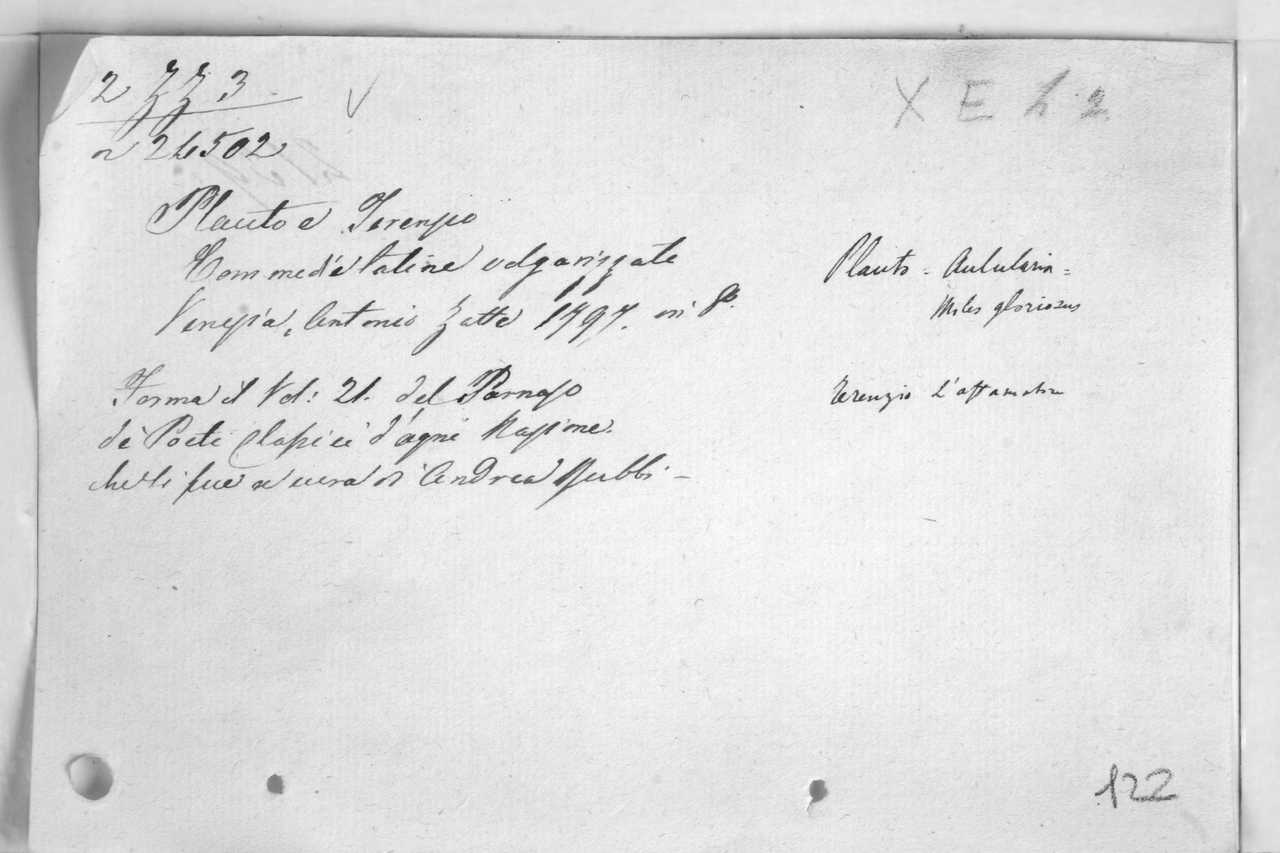 2 ZZ 3
n 24502
X E h 2
Plauto e Terenzio
Commedie latine volgarizzate
Venezia, Antonio Zatta 1797. in 8°.
Plauto - Aulularia =
Miles gloriosus
Forma il Vol: 21. del Parnaso
de Poeti Classici d'ogni Nazione.
che si fece a cura di Andrea Rubbi -
Terenzio L'affamatore
122